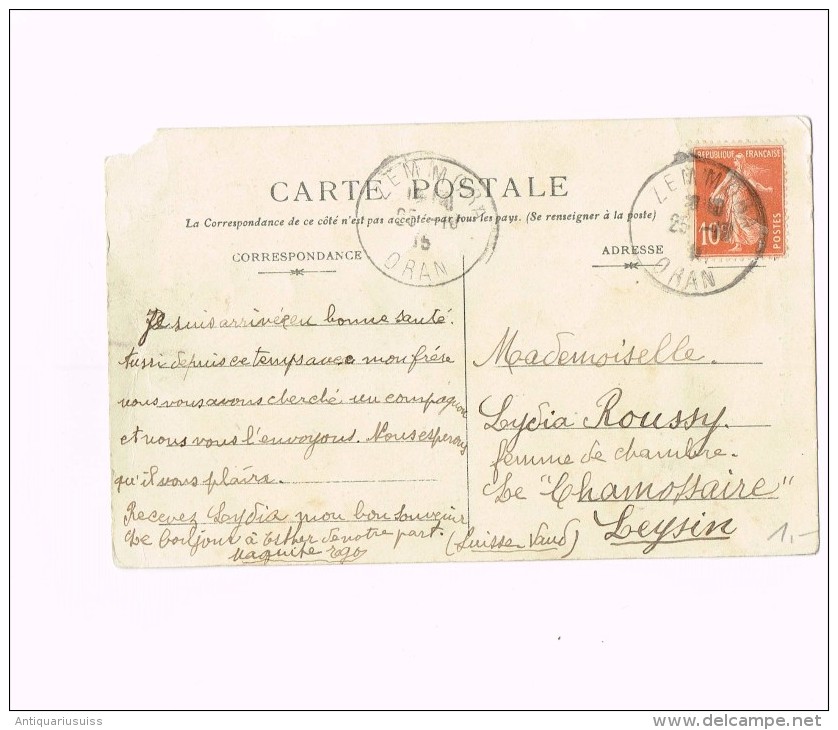 CARTE POSTALE
La Correspondance de ce côté n'est pas acceptée par tous les pays. (Se renseigner à la poste)
CORRESPONDANCE
ADRESSE
REPUBLIQUE FRANÇAISE
10
POSTES
ORAN
25
ORAN
Je suis arrivé en bonne santé.
Aussi depuis ce temps avec mon frére
nous vous avons cherché un compagnon
et nous vous l'envoyons. Nous esperons
qu'il vous plaira.
Recevez Lydia mon bon souvenir
Le bonjour à Esther de notre part.
Mademoiselle.
Lydia Roussy.
femme de chambre.
Le "Chamossaire"
Leysin
(Suisse Vaud)
1.-
Antiquariusuiss
www.delcampe.net